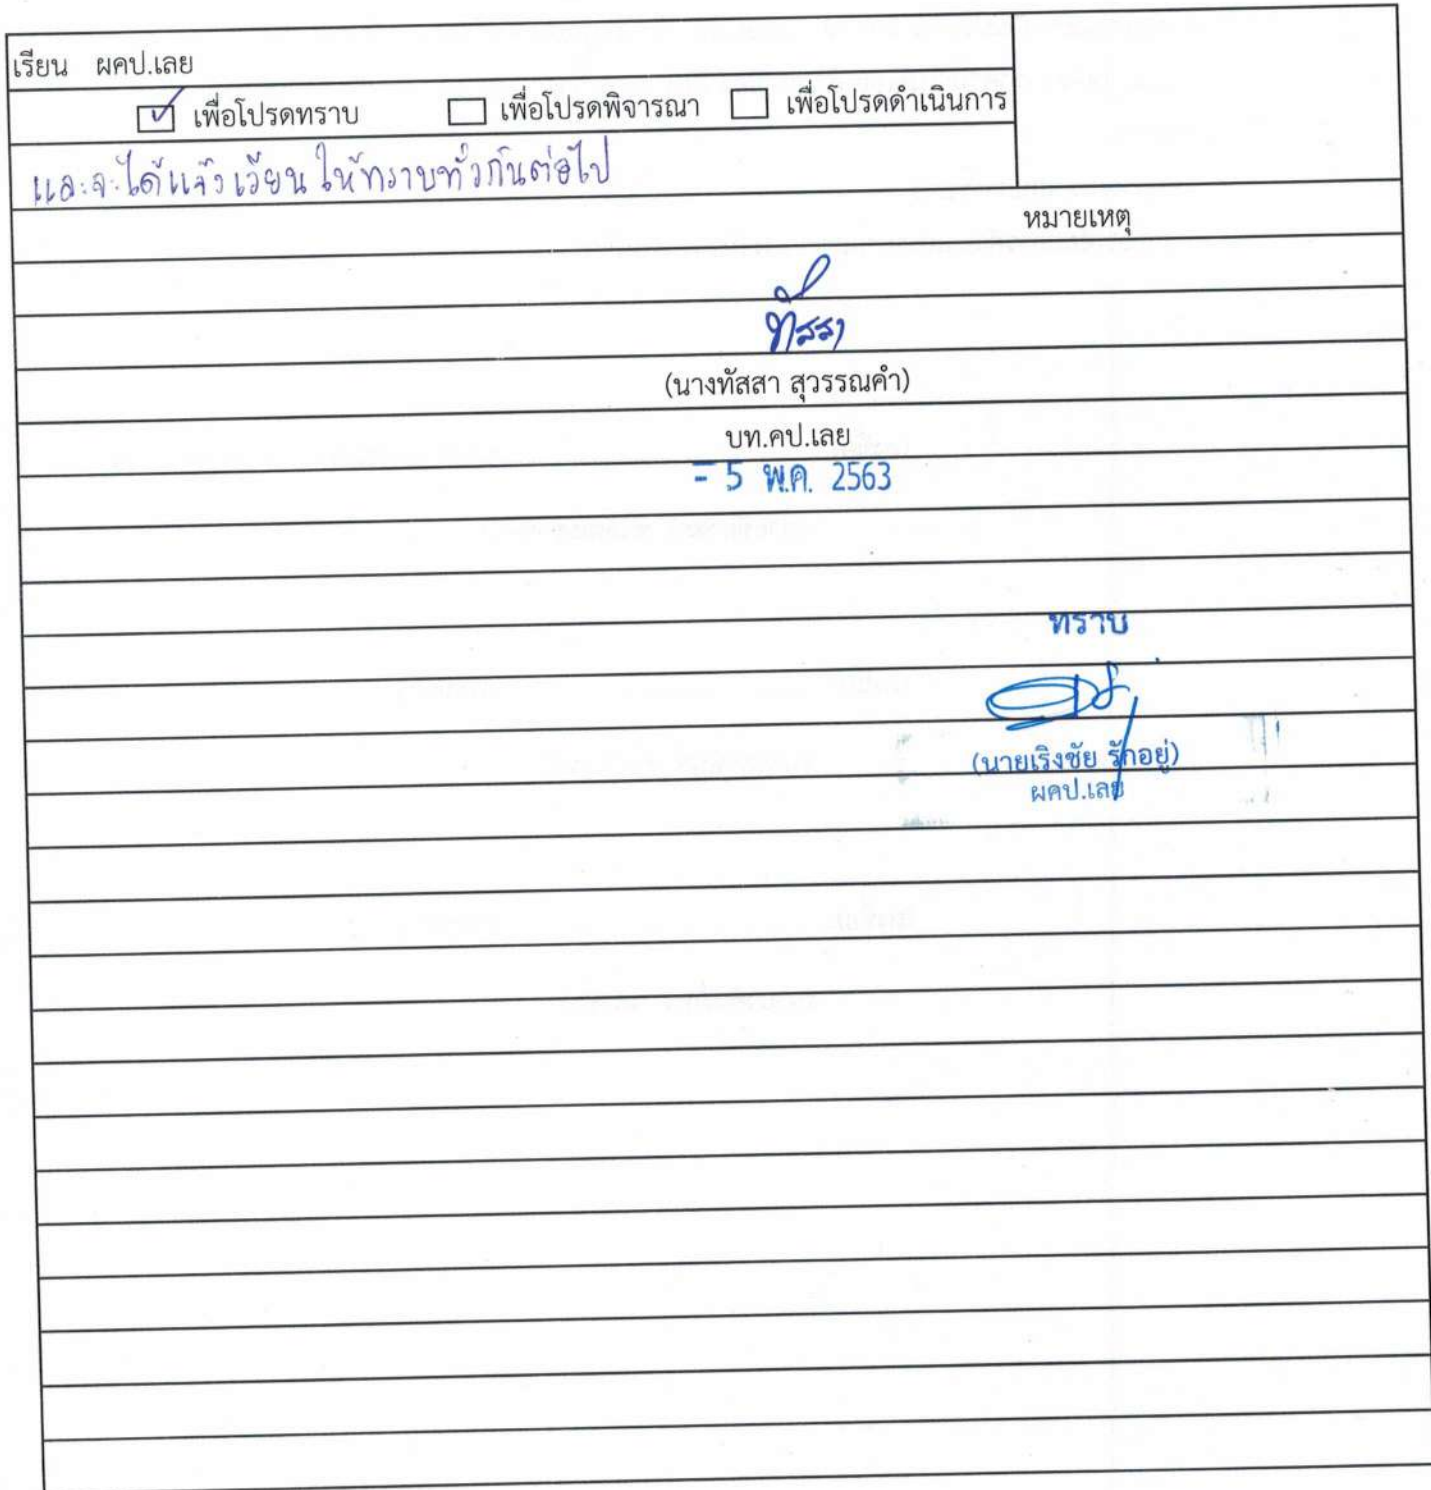 เรียน ผคป.เลย
เพื่อโปรดทราบ เพื่อโปรดพิจารณา เพื่อโปรดดำเนินการ
และจะได้แจ้งเวียนให้ทราบทั่วกันต่อไป
หมายเหตุ
ทัสสา
(นางทัสสา สุวรรณคำ)
บท.คป.เลย
- 5 พ.ค. 2563
ทราบ
(นายเริงชัย รักอยู่)
ผคป.เลย